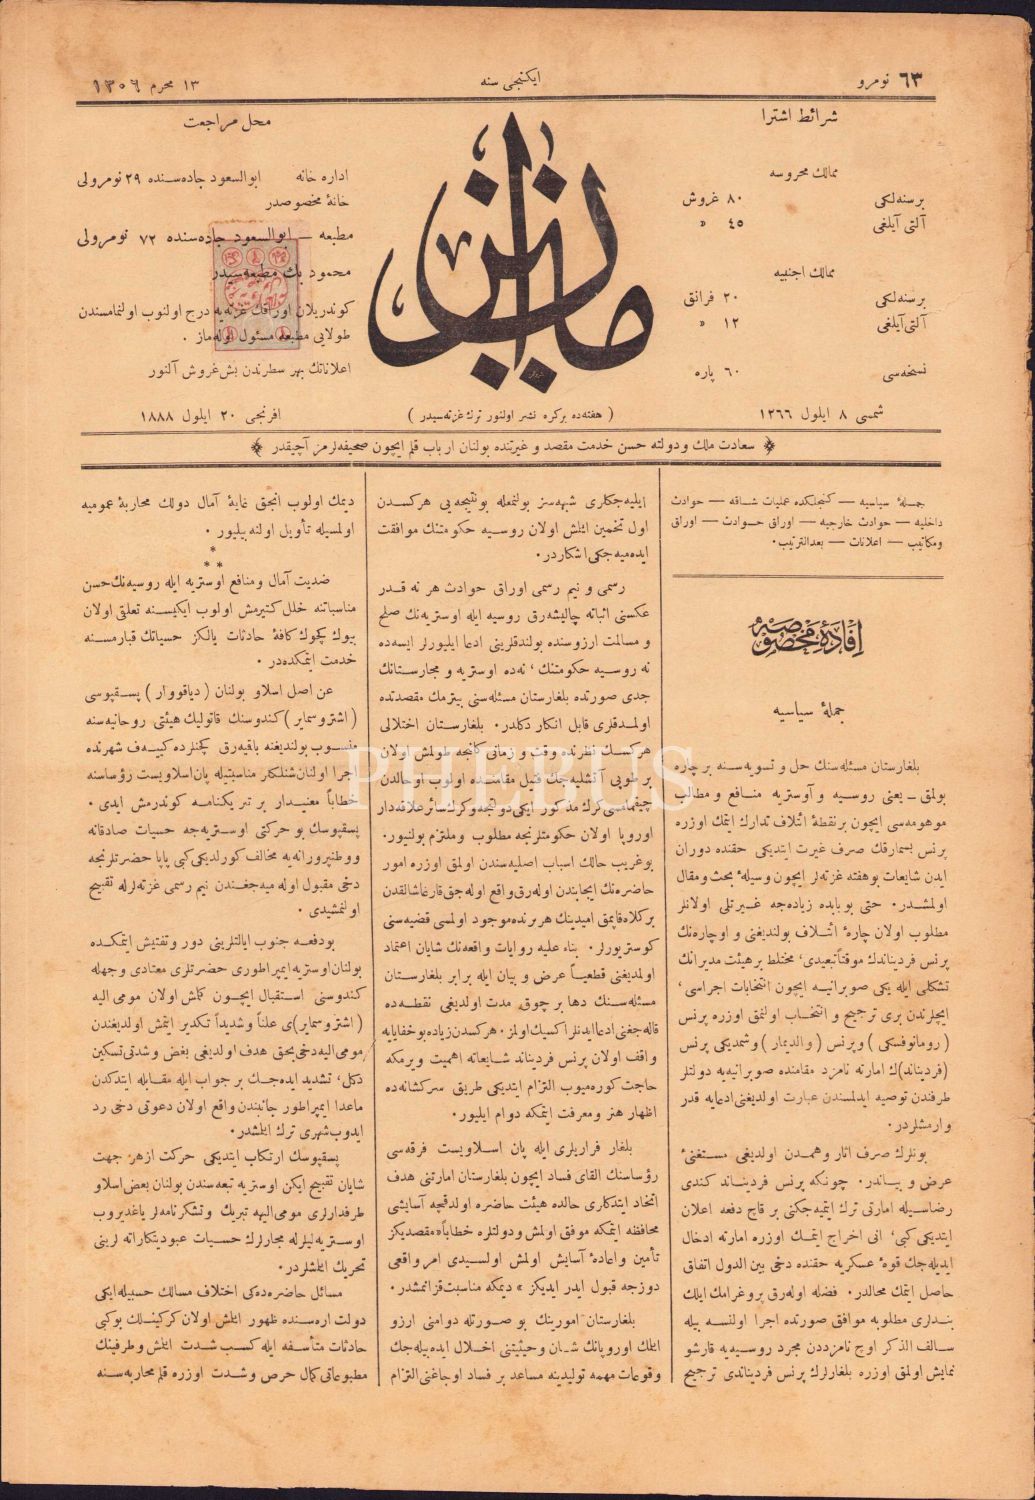 ٦٣ نومرو
ايكنجى سنه
١٣ محرم ١٣٠٦
شرائط اشترا
ممالك محروسه
برسنه‌لكى ٨٠ غروش
آلتى آيلغى ٤٥ »
ممالك اجنبيه
برسنه‌لكى ٢٠ فرانق
آلتى آيلغى ١٢ »
نسخه‌سى ٦٠ پاره
شمسى ٨ ايلول ١٢٦٦
ميزان
( هفته‌ده بركره نشر اولنور ترك غزته‌سيدر )
محل مراجعت
اداره خانه ابوالسعود جاده‌سنده ٢٩ نومرولى
خانهٔ مخصوصدر
مطبعه — ابوالسعود جاده‌سنده ٧٢ نومرولى
محمود بك مطبعه‌سيدر
كوندريلان اوراقك غزته‌يه درج اولنوب اولنمامسندن
طولايى مطبعه مسئول اوله‌ماز .
اعلاناتك بهر سطرندن بش غروش آلنور
افرنجى ٢٠ ايلول ١٨٨٨
سعادت ملك ودولته حسن خدمت مقصد و غيرتنده بولنان ارباب قلم ايچون صحيفه‌لرمز آچيقدر
جملهٔ سياسيه — كنجلكده عمليات شاقه — حوادث
داخليه — حوادث خارجيه — اوراق حوادث — اوراق
ومكاتيب — اعلانات — بعدالترتيب .
افادهٔ مخصوصه
جملهٔ سياسيه
بلغارستان مسئله‌سنك حل و تسويه‌سنه بر چاره
بولمق ـ يعنى روسيه و آوستريه منافع و مطالب
موهومه‌سى ايچون بر نقطهٔ ائتلاف تدارك ايتمك اوزره
پرنس بسمارقك صرف غيرت ايتديكى حقنده دوران
ايدن شايعات بو هفته غزته‌لر ايچون وسيلهٔ بحث و مقال
اولمشدر. حتى بو بابده زياده‌جه غيرتلى اولانلر
مطلوب اولان چارهٔ ائتلاف بولنديغنى و او چاره‌نك
پرنس فرديناندك موقتاً تبعيدى، مختلط بر هيئت مديرانك
تشكلى ايله يكى صوبرانيه ايچون انتخابات اجراسى،
ايچلرندن برى ترجيح و انتخاب اولنمق اوزره پرنس
( رومانوفسكى ) و پرنس ( والديمار ) و شمديكى پرنس
( فرديناند)ك امارته نامزد مقامنده صوبرانيه‌يه دولتلر
طرفندن توصيه ايدلمسندن عبارت اولديغنى ادعايه قدر
وارمشلردر.
بونلرك صرف اثار وهمدن اولديغى مستغنىٔ
عرض و بياندر. چونكه پرنس فرديناند كندى
رضاسيله امارتى ترك ايتميه‌جكنى بر قاچ دفعه اعلان
ايتديكى كبى، انى اخراج ايتمك اوزره امارته ادخال
ايديله‌جك قوهٔ عسكريه حقنده دخى بين الدول اتفاق
حاصل ايتمك محالدر. فضله اوله‌رق پروغرامك ايلك
بندلرى مطلوبه موافق صورتده اجرا اولنسه بيله
سالف الذكر اوچ نامزددن مجرد روسيه‌يه قارشو
نمايش اولمق اوزره بلغارلرك پرنس فرديناندى ترجيح
ايليه‌جكلرى شبهه‌سز بولنمغله بو نتيجه‌يى هركسدن
اول تخمين ايتمش اولان روسيه حكومتنك موافقت
ايده‌ميه‌جكى اشكاردر.
رسمى و نيم رسمى اوراق حوادث هر نه قدر
عكسنى اثباته چاليشه‌رق روسيه ايله اوستريه‌نك صلح
و مسالمت ارزوسنده بولندقلرينى ادعا ايليورلر ايسه‌ده
نه روسيه حكومتنك ، نه‌ده اوستريه و مجارستانك
جدى صورتده بلغارستان مسئله‌سنى بيترمك مقصدنده
اولمدقلرى قابل انكار دكلدر. بلغارستان اختلالى
هركسك نظرنده وقت و زمانى كلنجه طولمش اولان
بر طوپى آتشليه‌جك فتيل مقامنده اولوب او حالدن
چيقمامسى كرك مذكور ايكى دولتجه و كرك سائر علاقه‌دار
اوروپا اولان حكومتلرنجه مطلوب و ملتزم بولنيور.
بو غريب حالك اسباب اصليه‌سندن اولمق اوزره امور
حاضره‌نك ايجابندن اوله‌رق واقع اوله‌جق قارغاشالقدن
بر كلاه قاپمق اميدينك هر برنده موجود اولمسى قضيه‌سنى
كوستريورلر. بناء عليه روايات واقعه‌نك شايان اعتماد
اولمديغنى قطعياً عرض و بيان ايله برابر بلغارستان
مسئله‌سنك دها بر چوق مدت اولديغى نقطه‌ده
قاله‌جغنى ادعا ايدنلر اكسيك اولمز. هركسدن زياده بو خفايايه
واقف اولان پرنس فرديناند شايعاته اهميت ويرمكه
حاجت كورميوب التزام ايتديكى طريق سركشانه‌ده
اظهار هنر و معرفت ايتمكه دوام ايليور.
بلغار فراريلرى ايله پان اسلاويست فرقه‌سى
رؤساسنك القاى فساد ايچون بلغارستان امارتنى هدف
اتخاذ ايتدكلرى حالده هيئت حاضره اولدقچه آسايشى
محافظه ايتمكه موفق اولمش و دولتلره خطاباً « مقصديكز
تأمين و اعادهٔ آسايش اولمش اولسيدى امر واقعى
دوزجه قبول ايدر ايديكز » ديمكه مناسبت قزانمشدر.
بلغارستان امورينك بو صورتله دوامنى ارزو
ايتمك اوروپانك شان و حيثيتنى اخلال ايده‌بيله‌جك
وقوعات مهمه توليدينه مساعد بر فساد اوجاغنى التزام
ديمك اولوب انجق غايهٔ آمال دولك محاربهٔ عموميه
اولمسيله تأويل اولنه بيليور.
* * *
ضديت آمال و منافع اوستريه ايله روسيه‌نك حسن
مناسباتنه خلل كتيرمش اولوب ايكيسنه تعلقى اولان
بيوك كچوك كافهٔ حادثات يالكز حسياتك قبارمسنه
خدمت ايتمكده‌در .
عن اصل اسلاو بولنان ( دياقووار ) پسقپوسى
( اشتروسماير ) كندوسنك قاتوليك هيئتى روحانيه‌سنه
منسوب بولنديغنه باقيه‌رق كچنلرده كييف شهرنده
اجرا اولنان شنلكلر مناسبتيله پان اسلاويست رؤساسنه
خطاباً معنيدار بر تبريكنامه كوندرمش ايدى .
پسقپوسك بو حركتى اوستريه‌جه حسيات صادقانه
و وطنپرورانه‌يه مخالف كورلديكى كبى پاپا حضرتلرنجه
دخى مقبول اوله‌ميه‌جغندن نيم رسمى غزته‌لرله تقبيح
اولنمشيدى .
بو دفعه جنوب ايالتلرينى دور و تفتيش ايتمكده
بولنان اوستريه ايمپراطورى حضرتلرى معتادى و جهله
كندوسنى استقبال ايچون كلمش اولان مومى اليه
( اشتروسماير)ى علناً و شديداً تكدير ايتمش اولديغندن
مومى اليه دخى بحق هدف اولديغى بغض و شدتى تسكين
دكل، تشديد ايده‌جك بر جواب ايله مقابله ايتدكدن
ماعدا ايمپراطور جانبندن واقع اولان دعوتى دخى رد
ايدوب شهرى ترك ايتمشدر.
پسقپوسك ارتكاب ايتديكى حركت ازهر جهت
شايان تقبيح ايكن اوستريه تبعه‌سندن بولنان بعض اسلاو
طرفدارلرى مومى اليهه تبريك و تشكرنامه‌لر ياغديروب
اوستريه‌ليلرله مجارلرك حسيات عبوديتكارانه لرينى
تحريك ايتمشلردر.
مسائل حاضره‌ده‌كى اختلاف مسالك حسبيله ايكى
دولت اره‌سنده ظهور ايتمش اولان كركينلك بو كبى
حادثات متأسفه ايله كسب شدت ايتمش و طرفينك
مطبوعاتى كمال حرص و شدت اوزره قلم محاربه‌سنه
PHEBUS